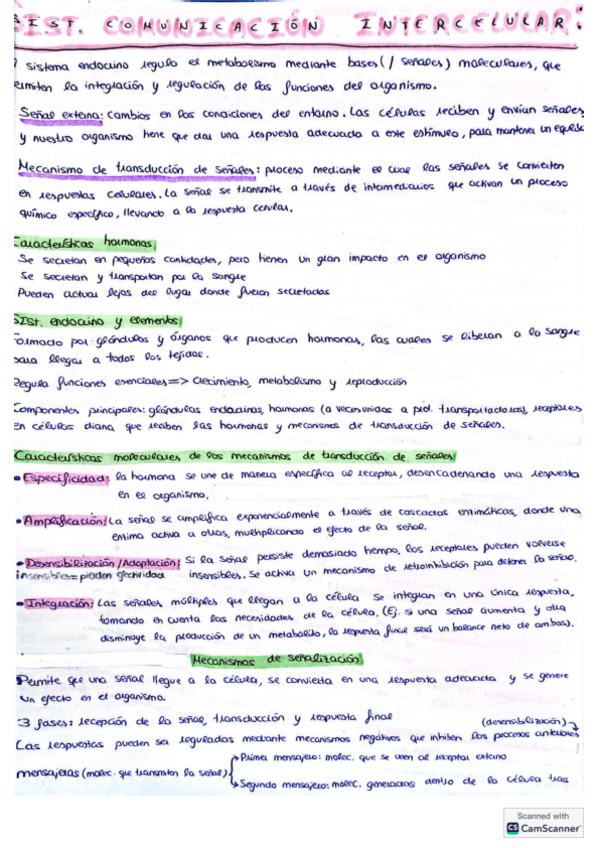 SIST. COMUNICACIÓN INTERCELULAR:
sistema endocrino regula el metabolismo mediante bases (/ señales) moleculares, que
permiten la integración y regulación de las funciones del organismo.
Señal externa: cambios en las condiciones del entorno. Las células reciben y envían señales
y nuestro organismo tiene que dar una respuesta adecuada a este estímulo, para mantener un equilib
Mecanismo de transducción de señales: proceso mediante el cual las señales se convierten
en respuestas celulares. La señal se transmite a través de intermediarios que activan un proceso
químico específico, llevando a la respuesta celular.
Características hormonas
Se secretan en pequeñas cantidades, pero tienen un gran impacto en el organismo
Se secretan y transportan por la sangre
Pueden actuar lejos del lugar donde fueron secretadas
SIST. endocrino y elementos
Formado por glándulas y órganos que producen hormonas, las cuales se liberan a la sangre
para llegar a todos los tejidos.
Regula funciones esenciales=> Crecimiento, metabolismo y reproducción
Componentes principales: glándulas endocrinas, hormonas (a veces unidas a prot. transportadoras), receptores
en células diana que reciben las hormonas y mecanismos de transducción de señales.
Características moleculares de los mecanismos de transducción de señales
• Especificidad: la hormona se une de manera específica al receptor, desencadenando una respuesta
en el organismo.
• Amplificación: La señal se amplifica exponencialmente a través de cascadas enzimáticas, donde una
enzima activa a otras, multiplicando el efecto de la señal.
• Desensibilización/Adaptación: Si la señal persiste demasiado tiempo, los receptores pueden volverse
insensibles= pierden efectividad insensibles. Se activa un mecanismo de retroinhibición para detener la señal.
• Integración: Las señales múltiples que llegan a la célula se integran en una única respuesta,
tomando en cuenta las necesidades de la célula. (Ej. si una señal aumenta y otra
disminuye la producción de un metabolito, la respuesta final será un balance neto de ambas).
Mecanismos de señalización
Permite que una señal llegue a la célula, se convierta en una respuesta adecuada y se genere
un efecto en el organismo.
3 fases: recepción de la señal, transducción y respuesta final
(desensibilización)
Las respuestas pueden ser reguladas mediante mecanismos negativos que inhiben los procesos anteriores
Primer mensajero: molec. que se unen al receptor externo
mensajeros (molec. que transmiten la señal)
Segundo mensajero: molec. generadas dentro de la célula tras
Scanned with
CS CamScanner